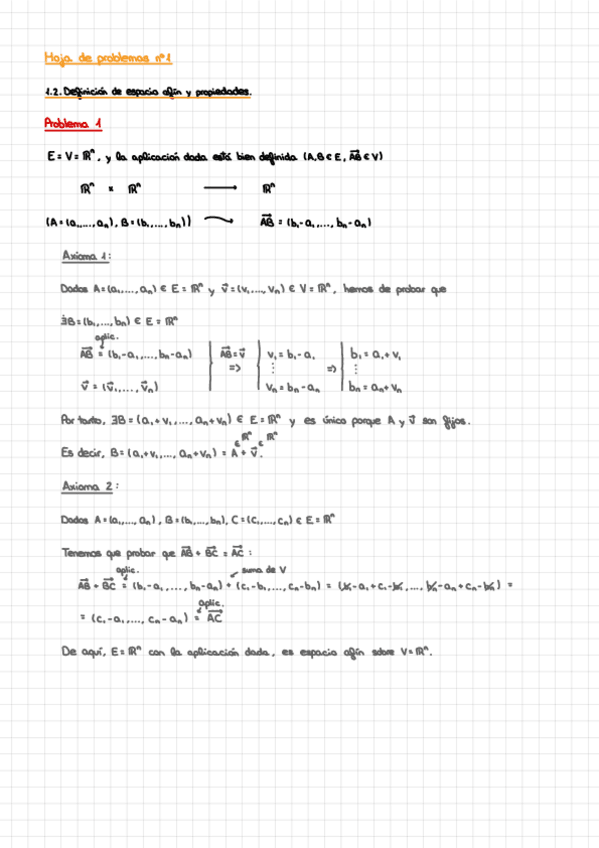 Hoja de problemas nº1
1.2. Definición de espacio afín y propiedades.
Problema 1
E = V = ℝⁿ, y la aplicación dada está bien definida (A,B ∈ E, AB⃗ ∈ V)
ℝⁿ × ℝⁿ ⟶ ℝⁿ
(A = (a₁,..., aₙ), B = (b₁,..., bₙ)) ⟶ AB⃗ = (b₁-a₁,..., bₙ-aₙ)
Axioma 1:
Dados A = (a₁,..., aₙ) ∈ E = ℝⁿ y v⃗ = (v₁,..., vₙ) ∈ V = ℝⁿ, hemos de probar que
∃B = (b₁,..., bₙ) ∈ E = ℝⁿ
aplic.
AB⃗ = (b₁-a₁,..., bₙ-aₙ) | AB⃗ = v⃗ | v₁ = b₁-a₁ | b₁ = a₁+v₁
=> ⋮ => ⋮
v⃗ = (v⃗₁,..., v⃗ₙ) | vₙ = bₙ-aₙ | bₙ = aₙ+vₙ
Por tanto, ∃B = (a₁+v₁,..., aₙ+vₙ) ∈ E = ℝⁿ y es único porque A y v⃗ son fijos.
∈ ℝⁿ ∈ ℝⁿ
Es decir, B = (a₁+v₁,..., aₙ+vₙ) = A + v⃗.
Axioma 2:
Dados A = (a₁,..., aₙ), B = (b₁,..., bₙ), C = (c₁,..., cₙ) ∈ E = ℝⁿ
Tenemos que probar que AB⃗ + BC⃗ = AC⃗ :
aplic. suma de V
AB⃗ + BC⃗ = (b₁-a₁,..., bₙ-aₙ) + (c₁-b₁,..., cₙ-bₙ) = (b₁-a₁+c₁-b₁,..., bₙ-aₙ+cₙ-bₙ) =
aplic.
= (c₁-a₁,..., cₙ-aₙ) = AC⃗
De aquí, E = ℝⁿ con la aplicación dada, es espacio afín sobre V = ℝⁿ.